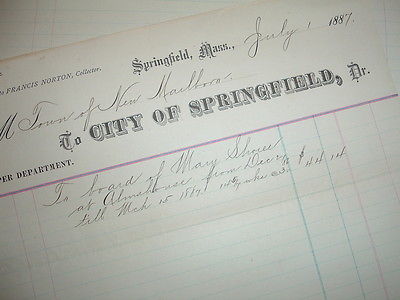 Springfield, Mass., July 1 1887.
FRANCIS NORTON, Collector.
M Town of New Marlboro.
To CITY OF SPRINGFIELD, Dr.
PER DEPARTMENT.
To board of Mary Shores
at Almshouse from Dec
till Mch 15 1887. 14 5/7 wks @ 3. $ 44.14